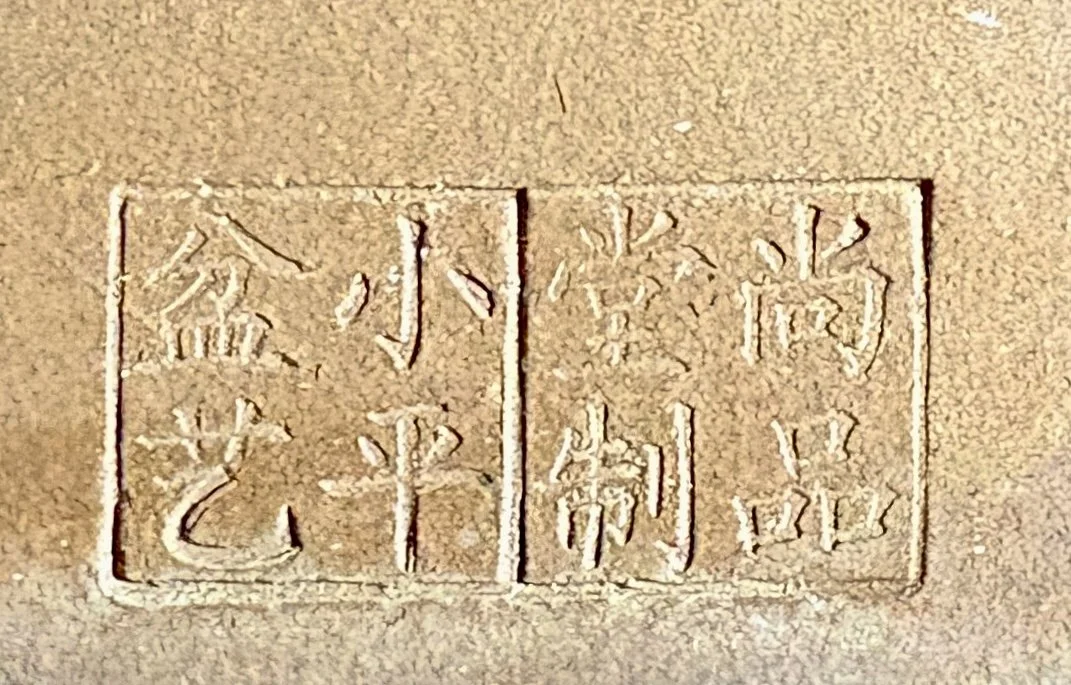 尚品
堂制
小平
盆艺